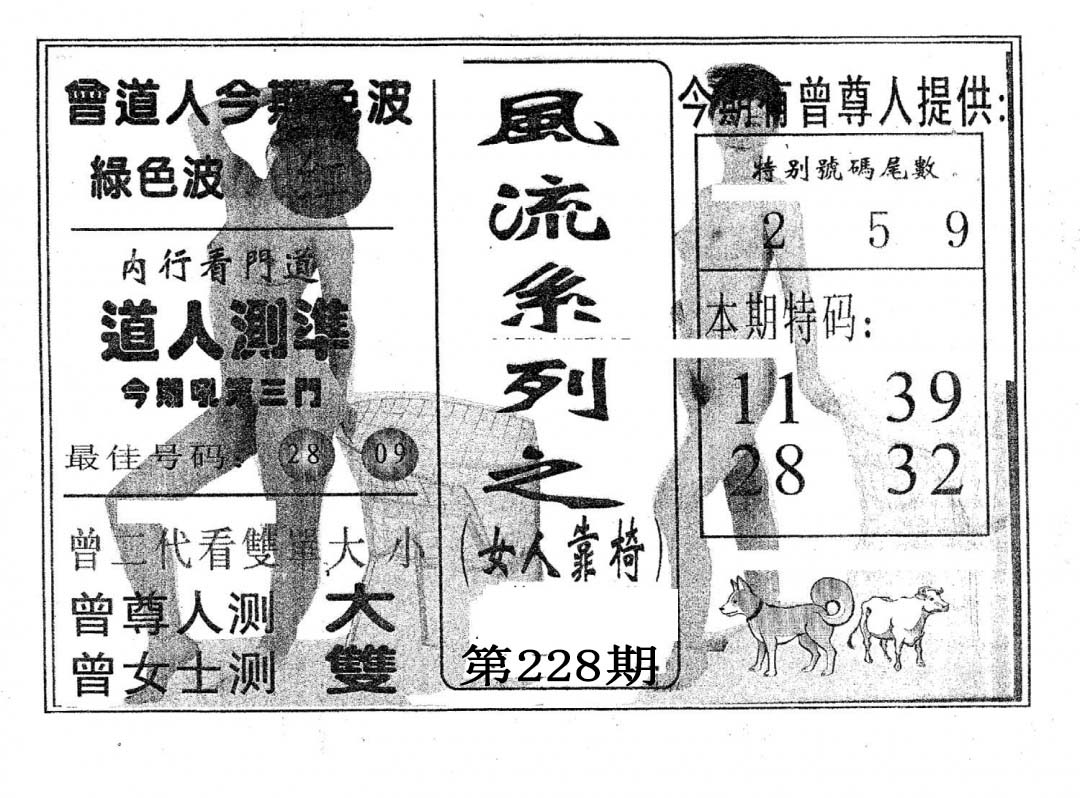 曾道人今期色波
綠色波 紅
內行看門道
道人測準
今期吼第三門
最佳号码: 28 09
曾二代看雙單大小
曾尊人测 大
曾女士测 雙
風流系列之
(女人靠椅)
第228期
今期有曾尊人提供:
特别號碼尾數
2 5 9
本期特码:
11 39
28 32